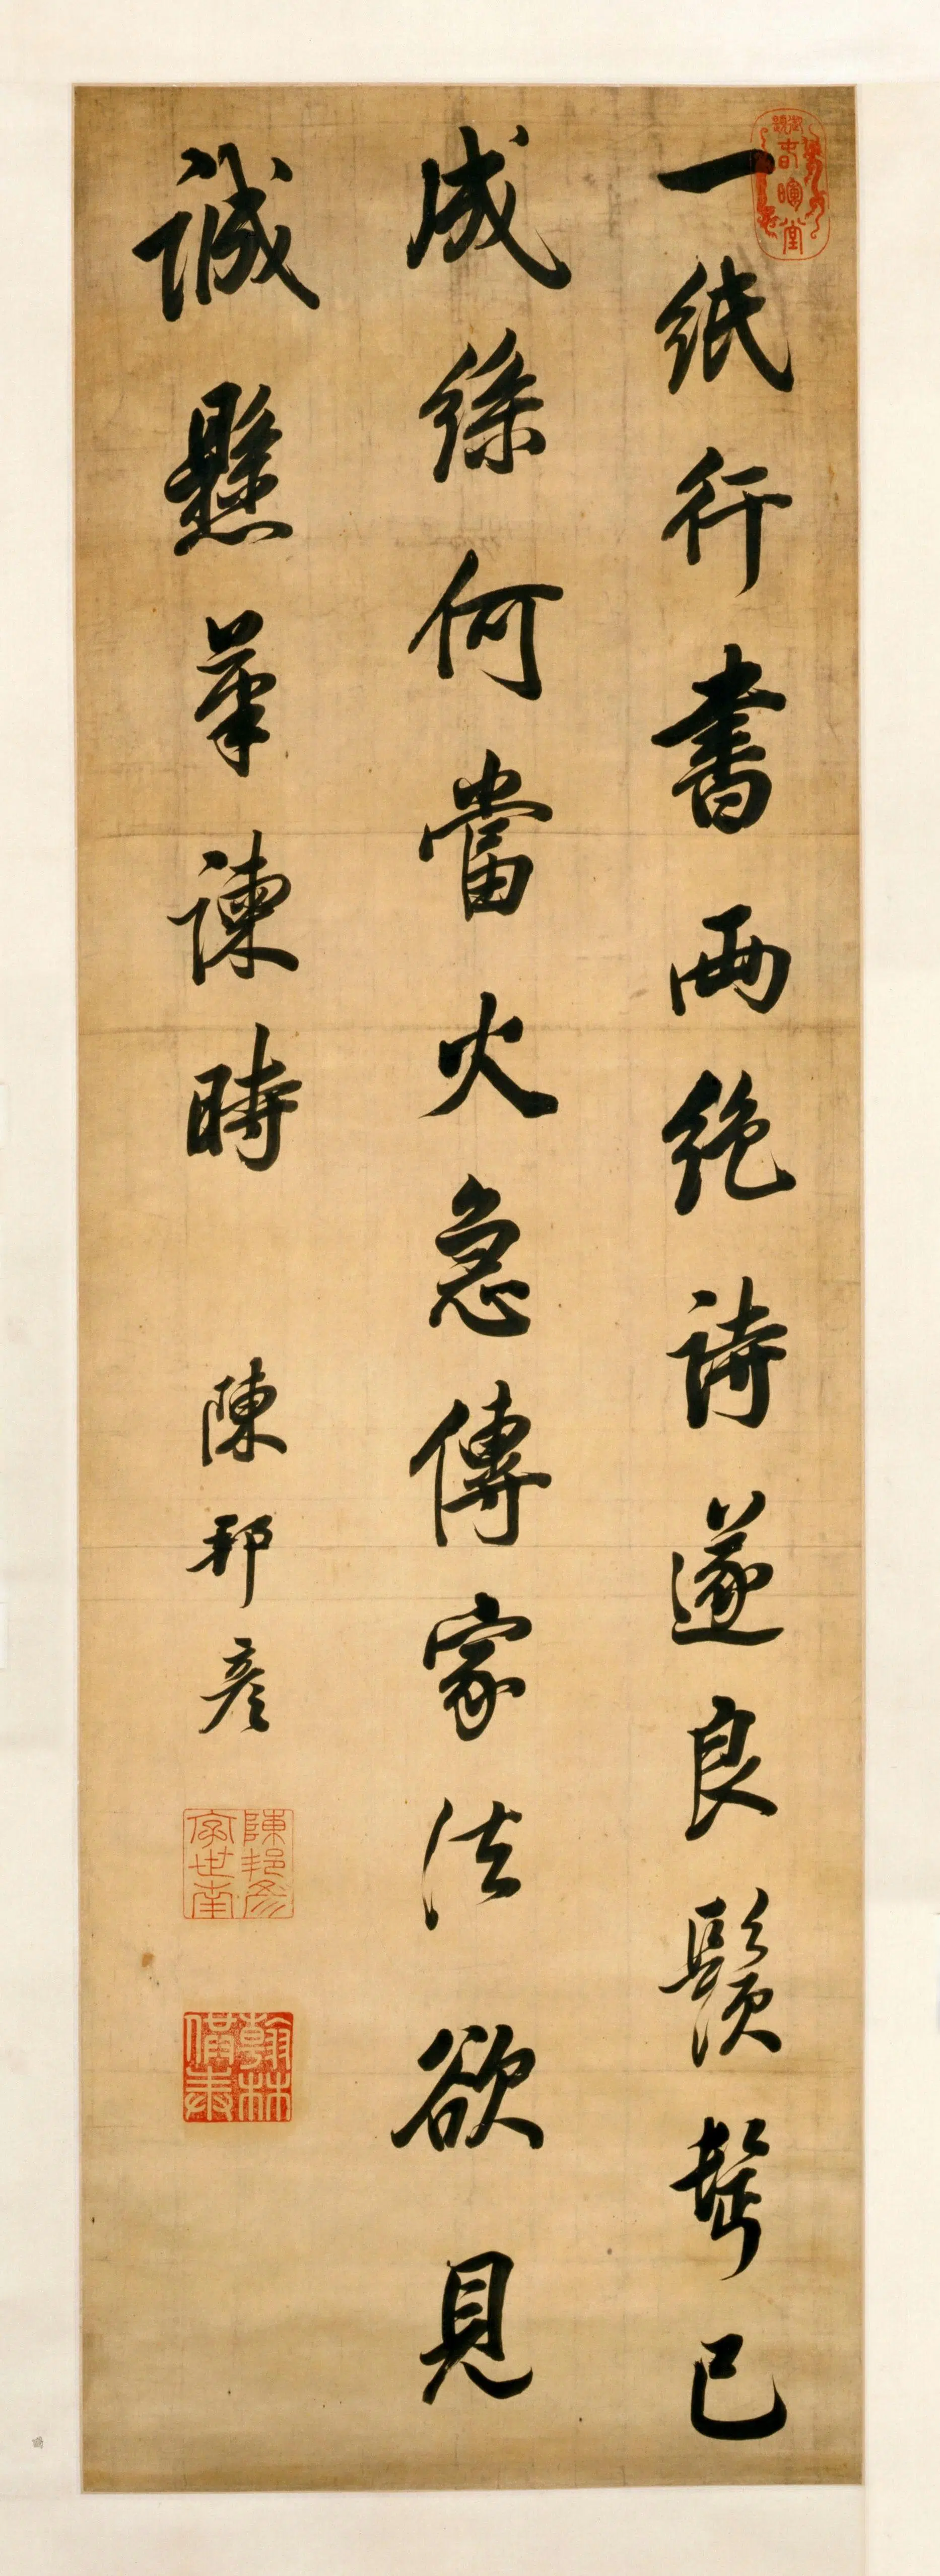 春暉堂
一紙行書兩絕詩遂良鬚鬢已
成絲何當火急傳家法欲見
誠懸筆諫時
陳邦彥
陳邦彥字世南
翰林